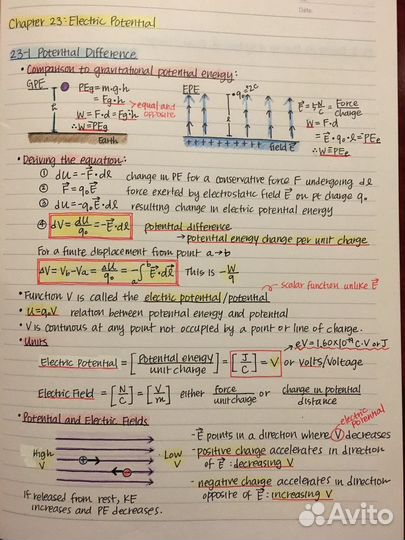 Date:
Chapter 23: Electric Potential
23-1 Potential Difference
• Comparison to gravitational potential energy:
GPE
PEg = m·g·h
= Fg·h
W = F·d = Fg·h
∴ W = PEg
equal and opposite
h
Earth
EPE
• q₀ = 2C
E⃗ = N/C = Force/charge
W = F·d
= E⃗·q₀·l = PEe
∴ W = PEe
field E⃗
+ + + + + + + + + +
• Deriving the equation:
① dU = -F⃗·dl change in PE for a conservative force F undergoing dl
② F⃗ = q₀E⃗ force exerted by electrostatic field E⃗ on pt charge q₀
③ dU = -q₀E⃗·dl resulting change in electric potential energy
④ dV = dU/q₀ = -E⃗·dl potential difference
→ potential energy change per unit charge
For a finite displacement from point a→b
ΔV = Vb - Va = ΔU/q₀ = -∫ₐᵇ E⃗·dl⃗ This is -W/q
→ scalar function unlike E⃗
• Function V is called the electric potential/potential
• U = q₀V relation between potential energy and potential
• V is continous at any point not occupied by a point or line of charge.
• Units
eV = 1.60×10⁻¹⁹ C·V or J
Electric Potential = [Potential energy/unit charge] = [J/C] = V or Volts/Voltage
Electric Field = [N/C] = [V/m] either force/unit charge or change in potential/distance
• Potential and Electric Fields
electric potential
High V
Low V
+
-
- E⃗ points in a direction where V decreases
- positive charge accelerates in direction
of E⃗: decreasing V
- negative charge accelerates in direction
opposite of E⃗: increasing V
If released from rest, KE
increases and PE decreases.
Avito